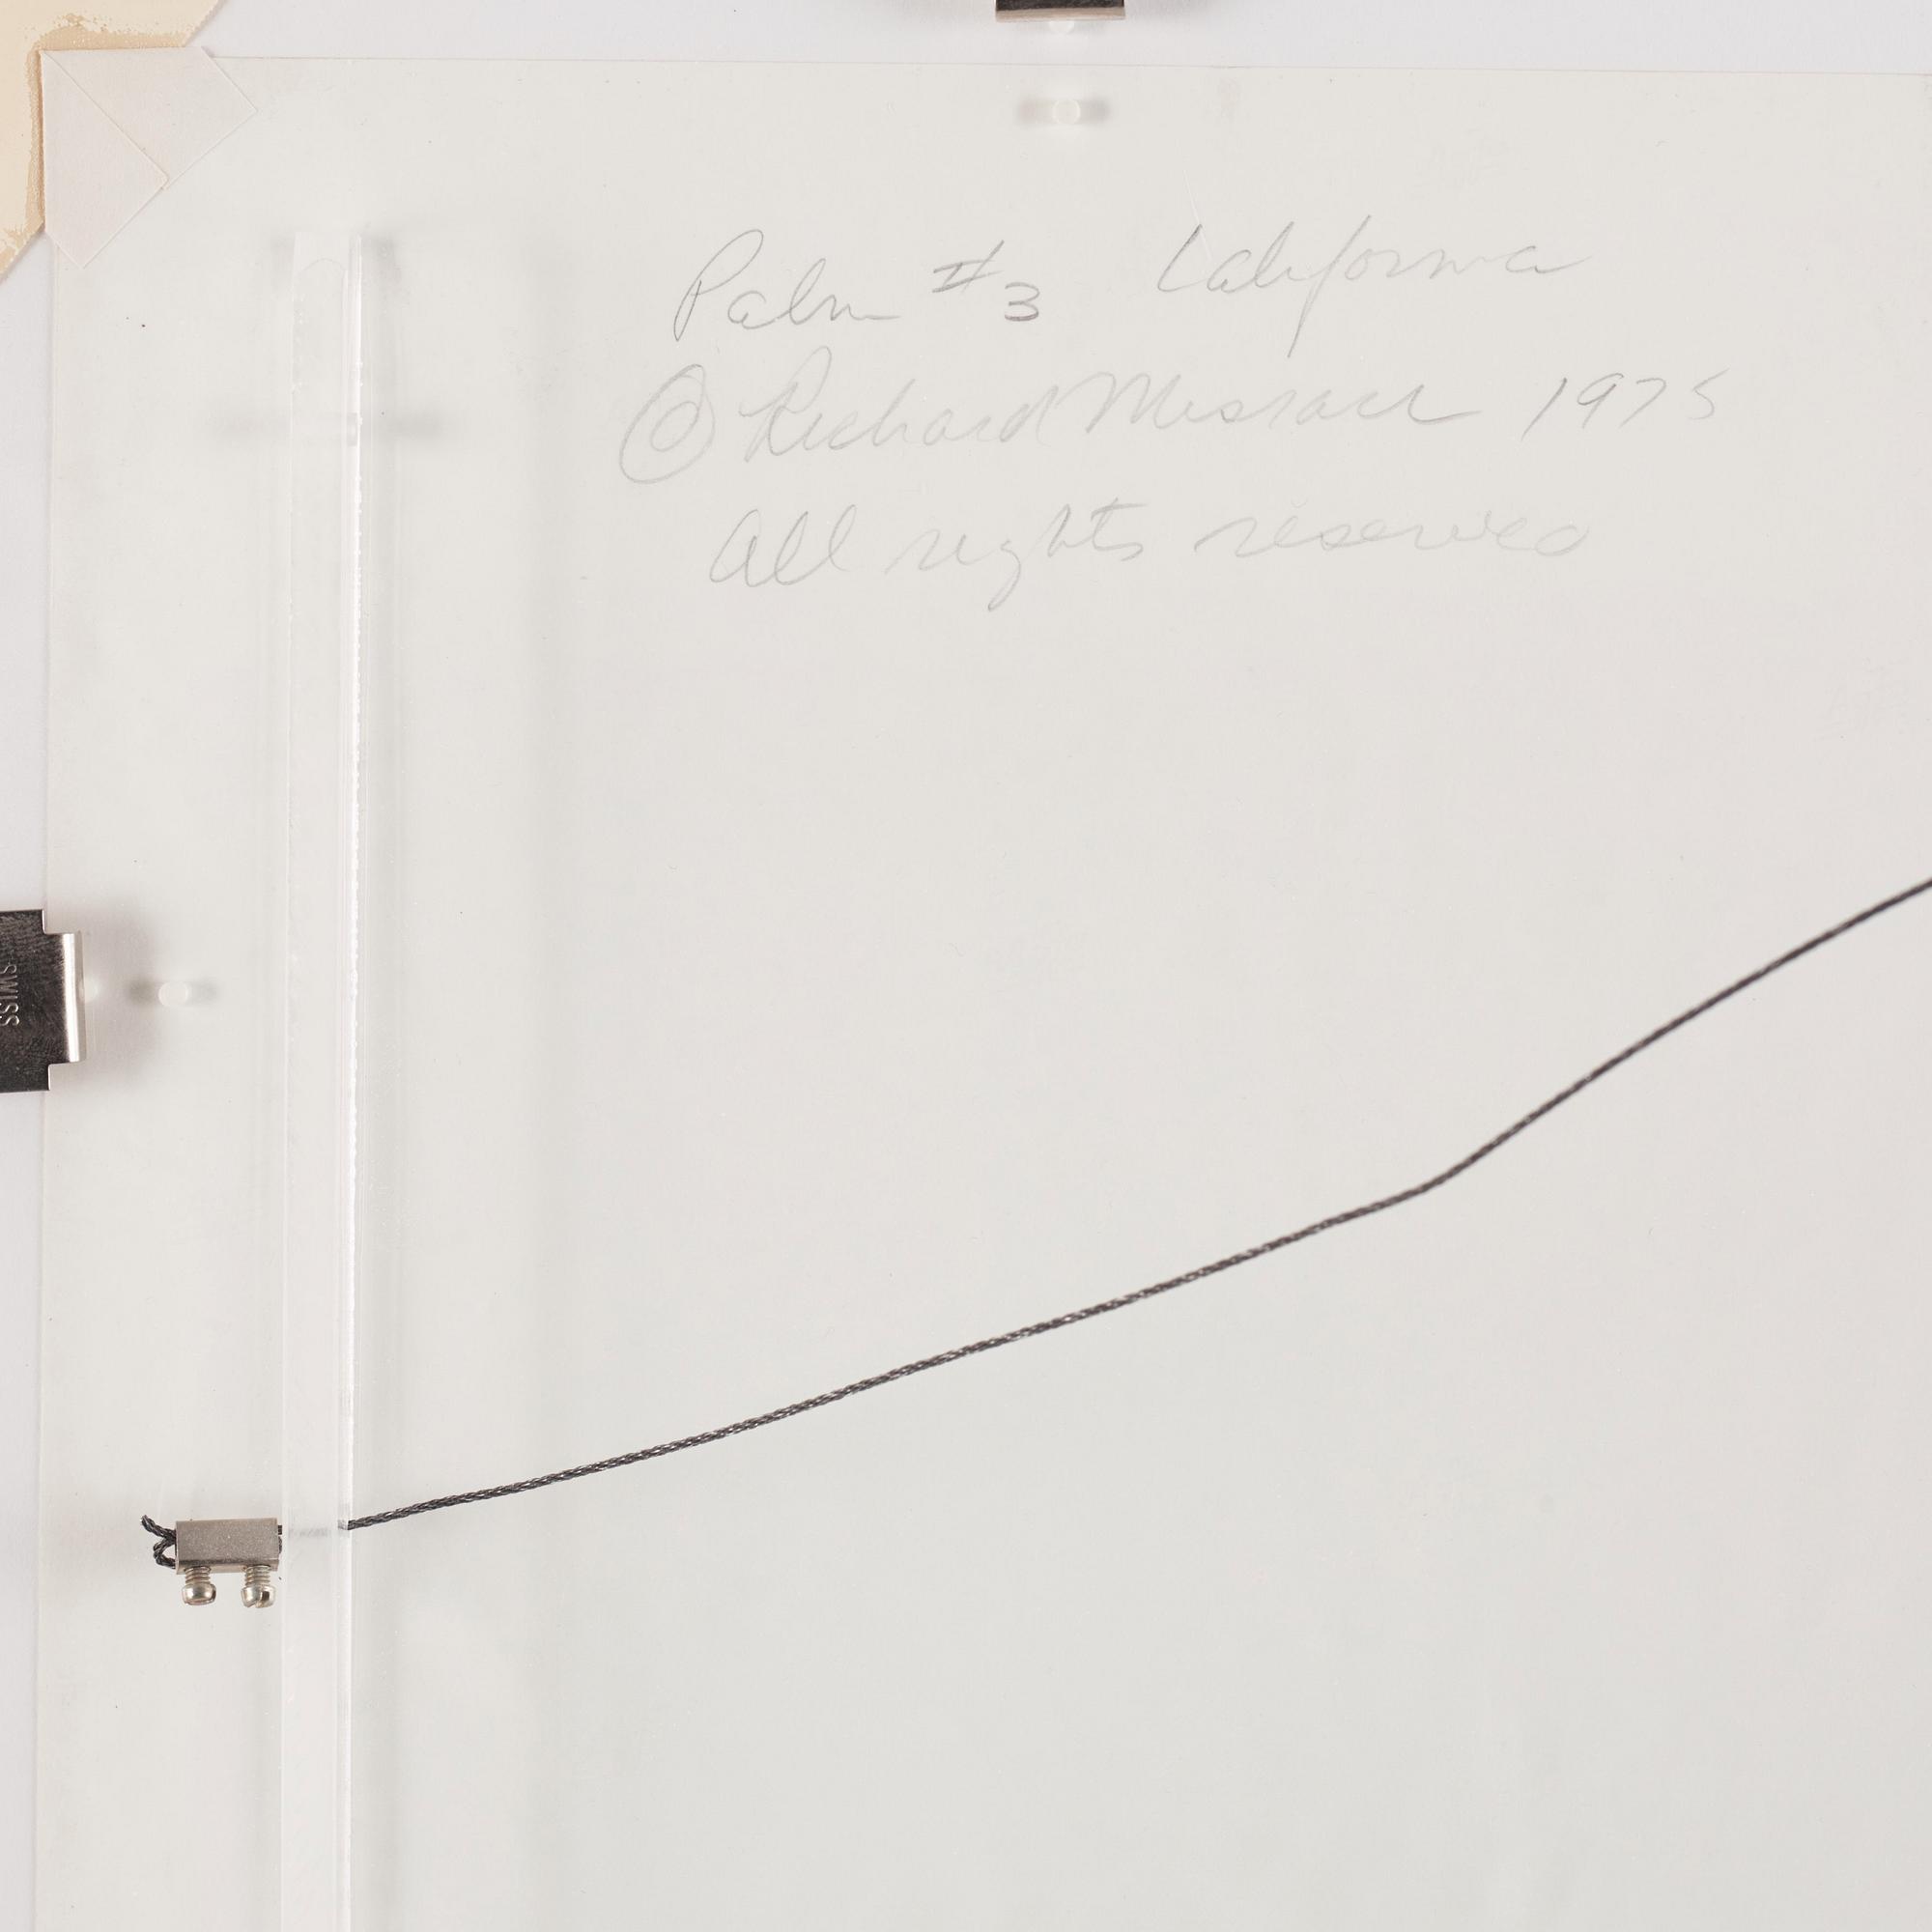 Palm #3 California
© Richard Misrach 1975
All rights reserved
SWISS